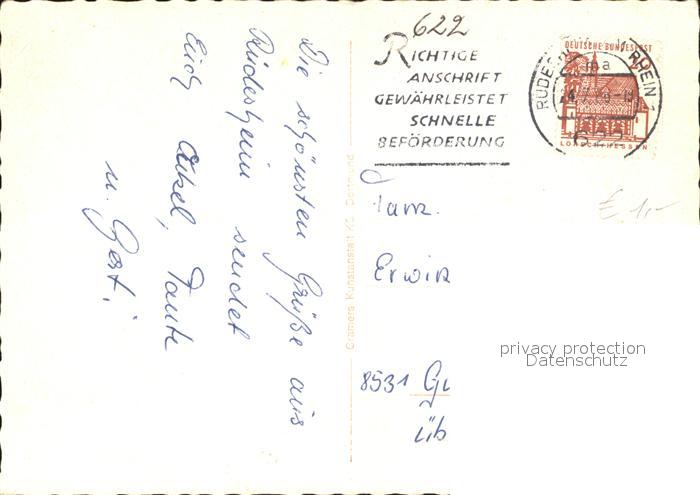 Die schönsten Grüße aus
Rüdesheim sendet
Euch Onkel, Tante
u. Gert.
Cramers Kunstanstalt KG. Dortmund
622
RICHTIGE
ANSCHRIFT
GEWÄHRLEISTET
SCHNELLE
BEFÖRDERUNG
DEUTSCHE BUNDESPOST
20
LORSCH/HESSEN
RHEIN
ma
622
€ 1,-
Fam.
Erwin
8531 Gu
üb
privacy protection
Datenschutz